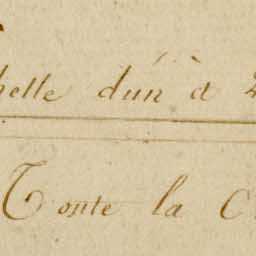 helle d'un à 2
Tonte la C